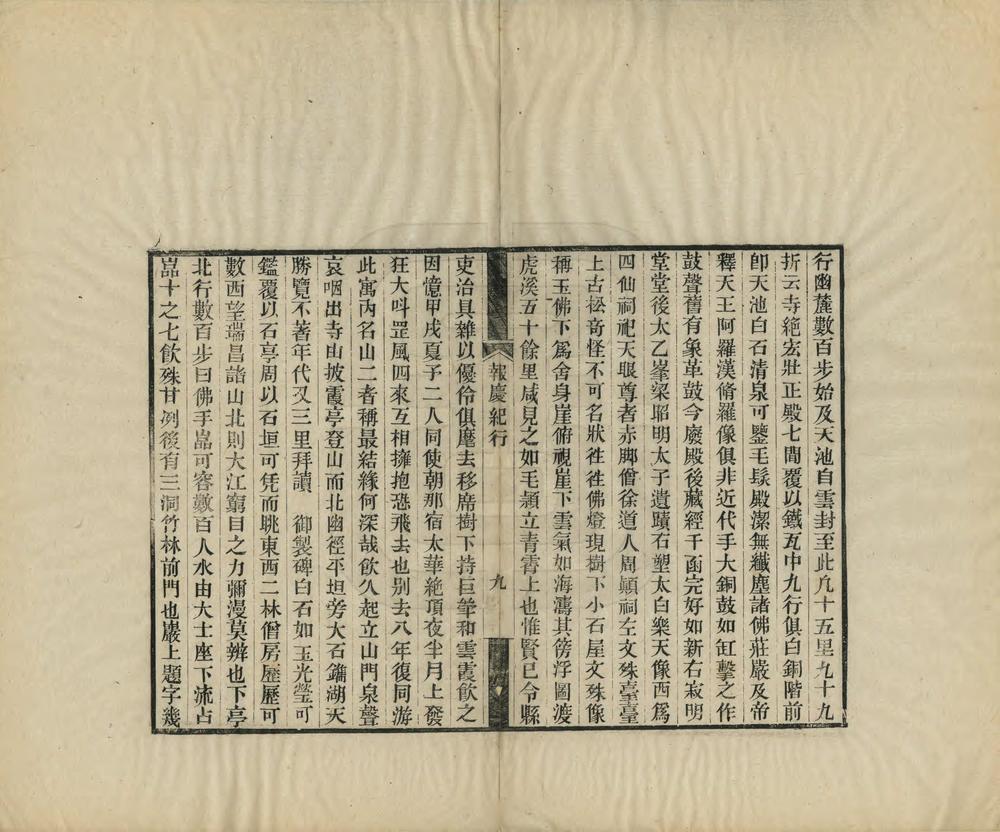 行幽麓數百步始及天池自雲封至此凡十五里九十九
折云寺絕宏壯正殿七間覆以鐵瓦中九行俱白銅階前
卽天池白石清泉可鑒毛髮殿潔無纖塵諸佛莊嚴及帝
釋天王阿羅漢脩羅像俱非近代手大銅鼓如缸擊之作
鼓聲舊有象革鼓今廢殿後藏經千函完好如新右寂明
堂堂後太乙峯梁昭明太子遺蹟石塑太白樂天像西爲
四仙祠祀天眼尊者赤脚僧徐道人周顚祠左文殊臺臺
上古松奇怪不可名狀徃徃佛燈現樹下小石屋文殊像
稱玉佛下爲舍身崖俯視崖下雲氣如海濤其傍浮圖渡
虎溪五十餘里咸見之如毛穎立青霄上也惟賢已令縣
報慶紀行
九
吏治具雜以優伶俱麾去移席樹下持巨觥和雲霞飲之
因憶甲戌夏予二人同使朝那宿太華絕頂夜半月上發
狂大呌罡風四來互相擁抱恐飛去也別去八年復同游
此寓內名山二者稱最結緣何深哉飲久起立山門泉聲
哀咽出寺由披霞亭登山而北幽徑平坦旁大石鐫湖天
勝覽不著年代又三里拜讀　御製碑白石如玉光瑩可
鑑覆以石亭周以石垣可凭而眺東西二林僧房歷歷可
數西望瑞昌諸山北則大江窮目之力彌漫莫辨也下亭
北行數百步曰佛手嵓可容數百人水由大士座下流占
嵓十之七飲殊甘冽後有三洞竹林前門也巖上題字幾